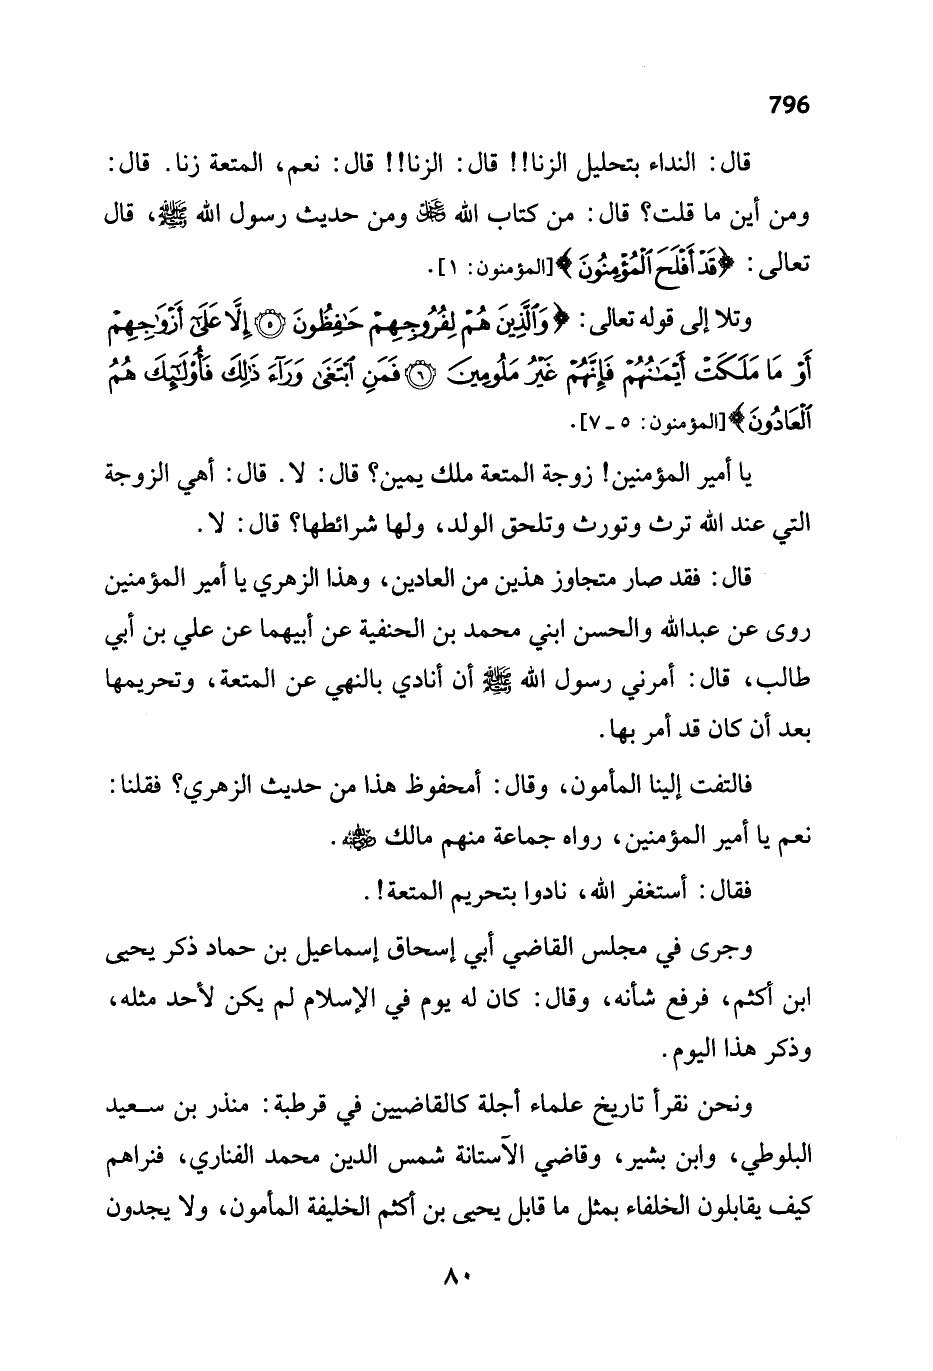 796
قال: النداء بتحليل الزنا!! قال: الزنا!! قال: نعم، المتعة زنا. قال:
ومن أين ما قلت؟ قال: من كتاب الله ﷿ ومن حديث رسول الله ﷺ، قال
تعالى: ﴿قَدْ أَفْلَحَ ٱلْمُؤْمِنُونَ﴾[المؤمنون: ١].
وتلا إلى قوله تعالى: ﴿وَٱلَّذِينَ هُمْ لِفُرُوجِهِمْ حَٰفِظُونَ ۝٥ إِلَّا عَلَىٰٓ أَزْوَٰجِهِمْ
أَوْ مَا مَلَكَتْ أَيْمَٰنُهُمْ فَإِنَّهُمْ غَيْرُ مَلُومِينَ ۝٦ فَمَنِ ٱبْتَغَىٰ وَرَآءَ ذَٰلِكَ فَأُو۟لَٰٓئِكَ هُمُ
ٱلْعَادُونَ﴾[المؤمنون: ٥ ـ ٧].
يا أمير المؤمنين! زوجة المتعة ملك يمين؟ قال: لا. قال: أهي الزوجة
التي عند الله ترث وتورث وتلحق الولد، ولها شرائطها؟ قال: لا.
قال: فقد صار متجاوز هذين من العادين، وهذا الزهري يا أمير المؤمنين
روى عن عبدالله والحسن ابني محمد بن الحنفية عن أبيهما عن علي بن أبي
طالب، قال: أمرني رسول الله ﷺ أن أنادي بالنهي عن المتعة، وتحريمها
بعد أن كان قد أمر بها.
فالتفت إلينا المأمون، وقال: أمحفوظ هذا من حديث الزهري؟ فقلنا:
نعم يا أمير المؤمنين، رواه جماعة منهم مالك رضي الله عنه.
فقال: أستغفر الله، نادوا بتحريم المتعة!.
وجرى في مجلس القاضي أبي إسحاق إسماعيل بن حماد ذكر يحيى
ابن أكثم، فرفع شأنه، وقال: كان له يوم في الإسلام لم يكن لأحد مثله،
وذكر هذا اليوم.
ونحن نقرأ تاريخ علماء أجلة كالقاضيين في قرطبة: منذر بن سعيد
البلوطي، وابن بشير، وقاضي الآستانة شمس الدين محمد الفناري، فنراهم
كيف يقابلون الخلفاء بمثل ما قابل يحيى بن أكثم الخليفة المأمون، ولا يجدون
٨٠